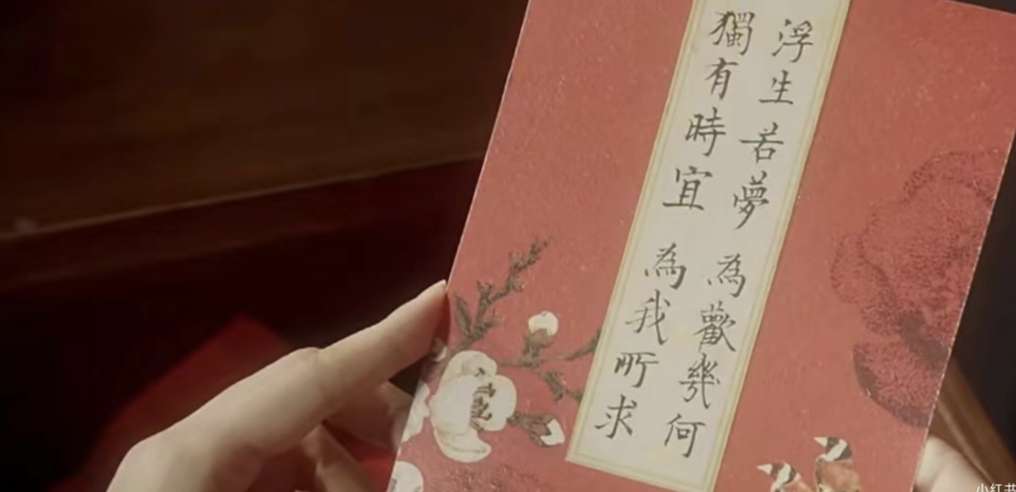 浮生若夢 為歡幾何
獨有時宜 為我所求
小红书